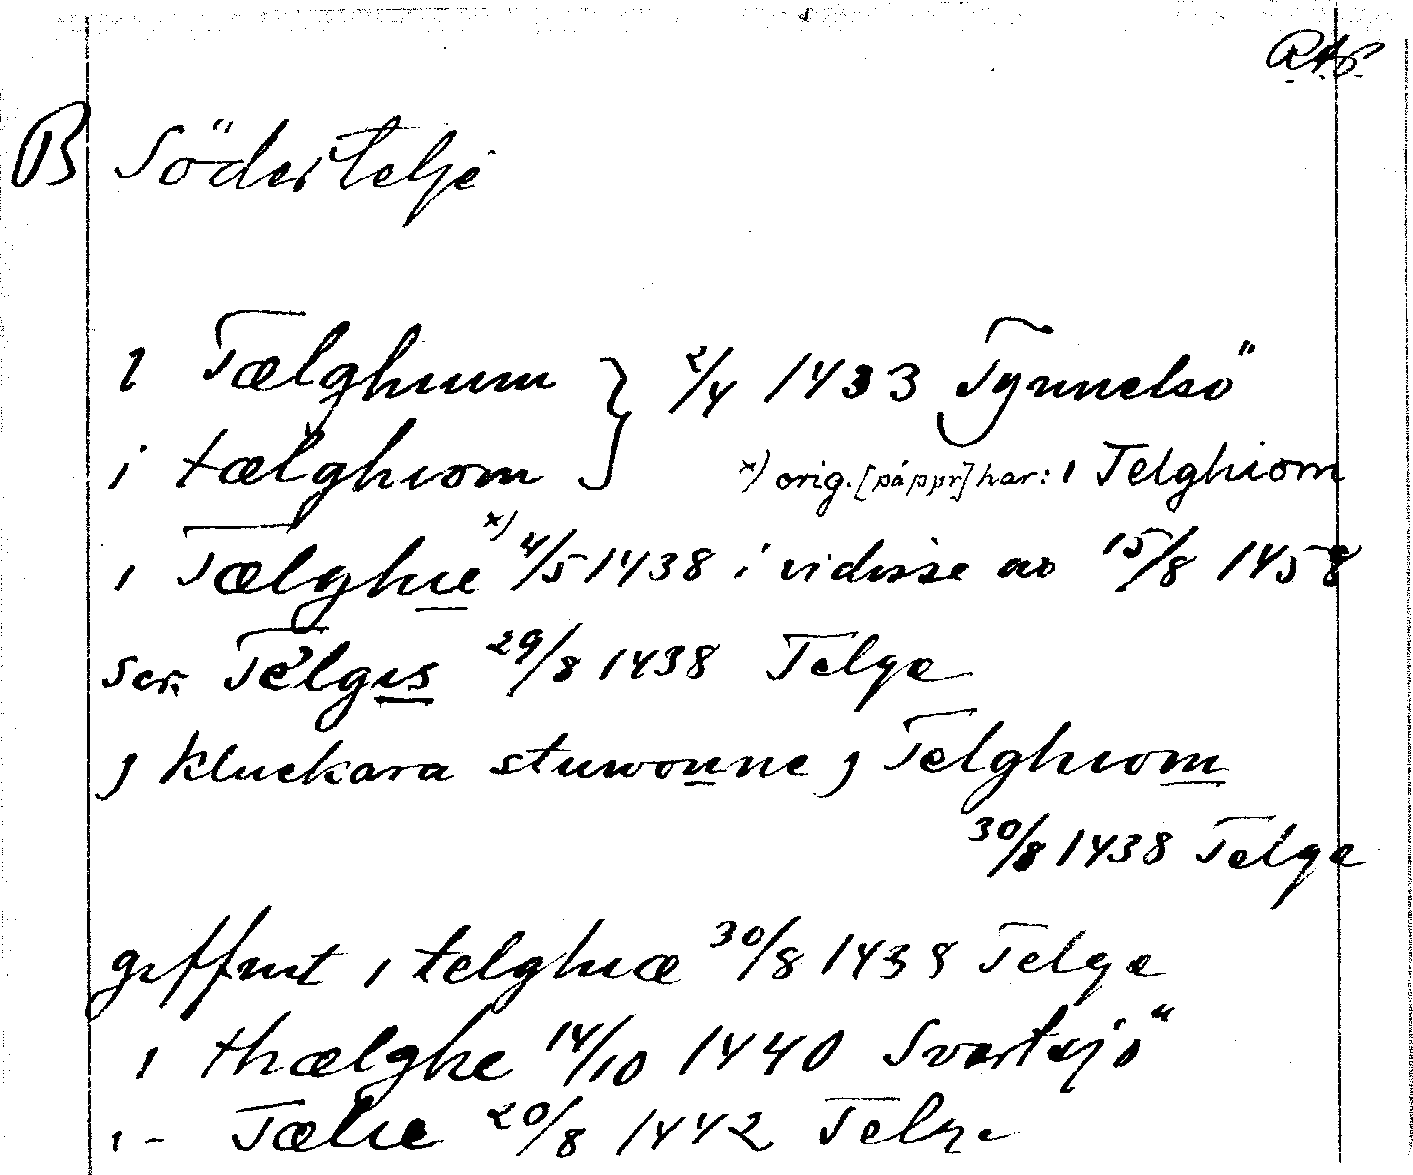 RAp.
B Södertelje
i Tælghium } 2/4 1433 Tynnelsö
i tælghiom
x) orig. [pappr] har: i Telghiom
i Tælghie x) 4/5 1438 i vidisse av 15/8 1458
scr. Telgis 29/8 1438 Telge
j kluckara stuwonne j Telghiom
30/8 1438 Telge
giffuit i telghiæ 30/8 1438 Telge
i thælghe 14/10 1440 Svartsjö
i - Tælie 20/8 1442 Telge